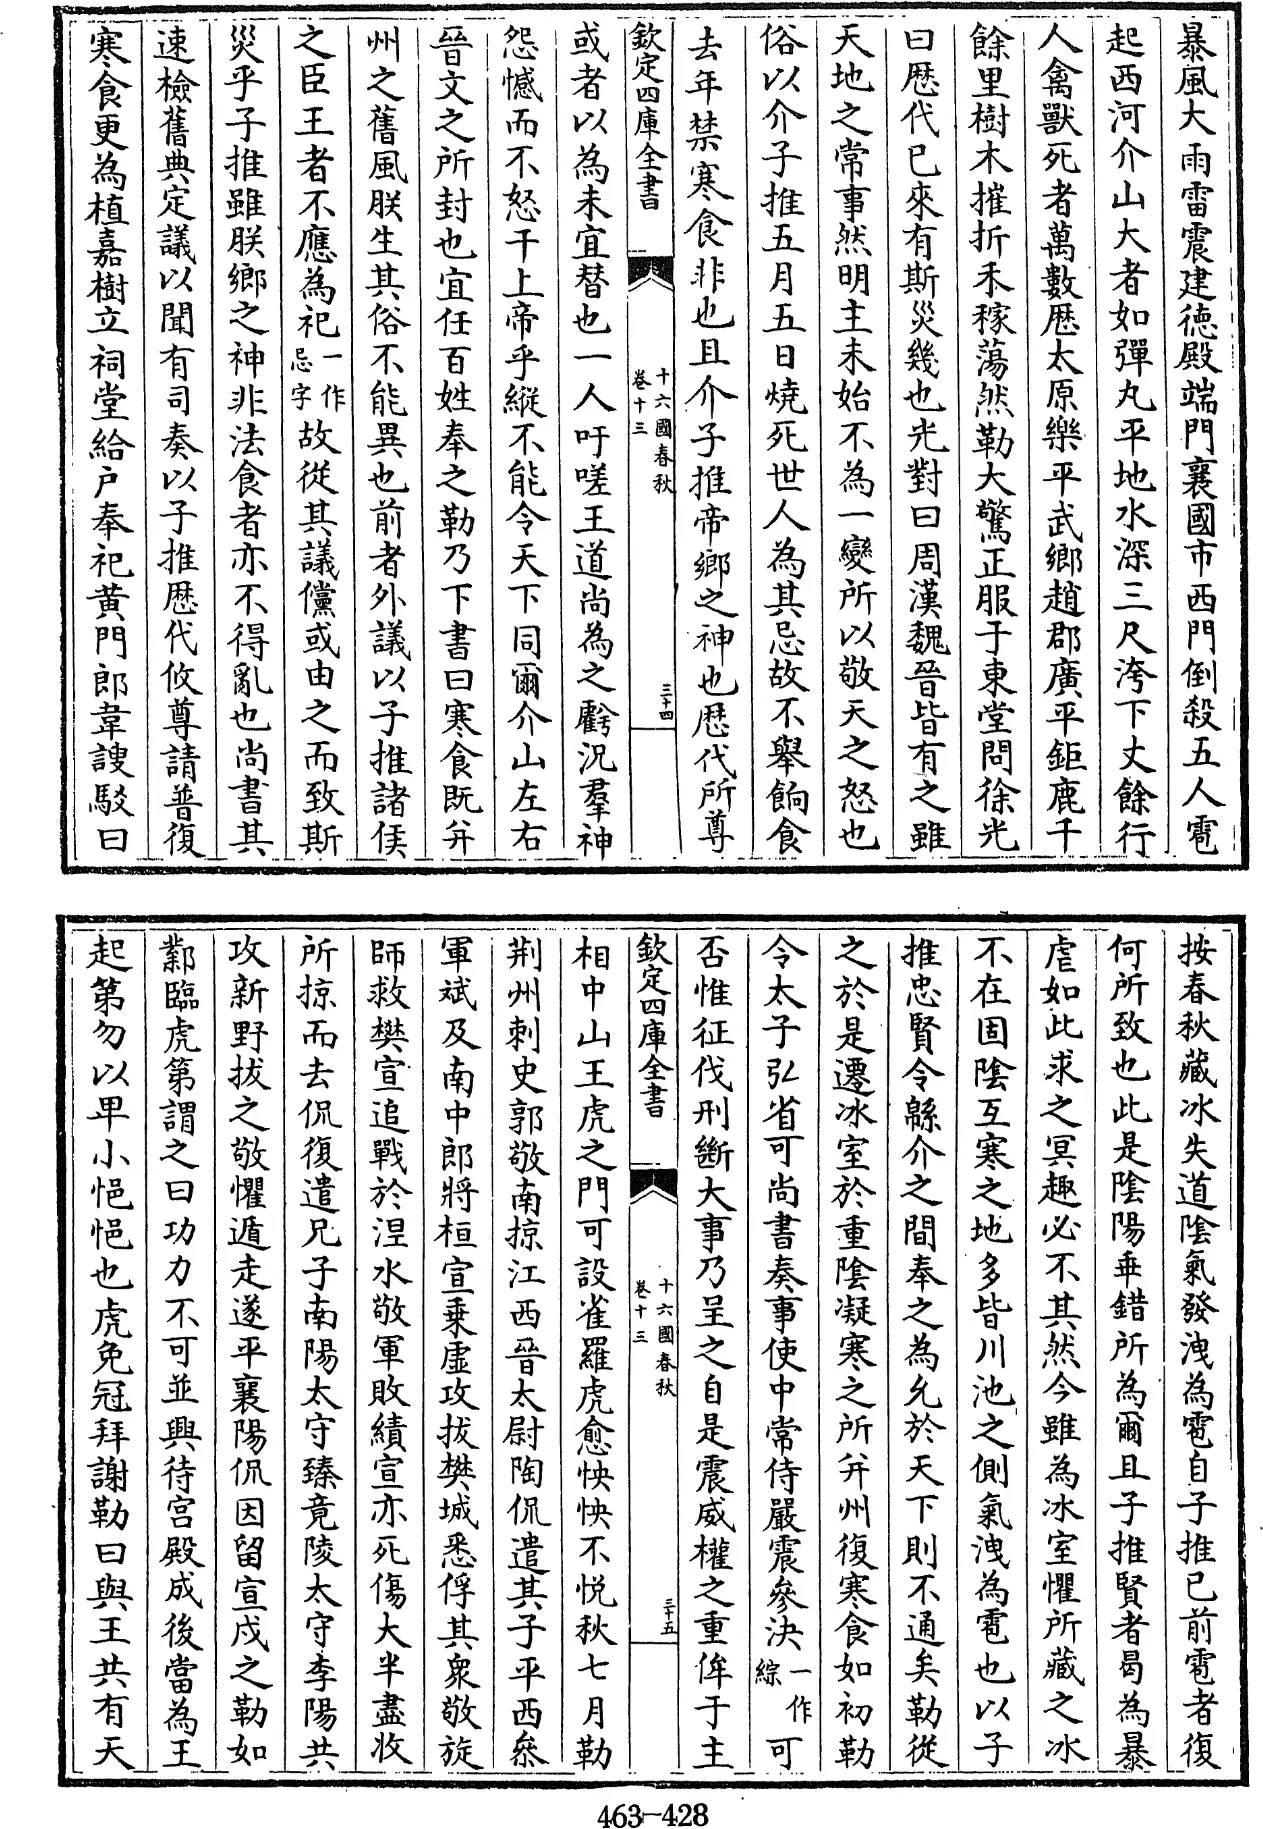 暴風大雨雷震建德殿端門襄國市西門倒殺五人雹
起西河介山大者如彈丸平地水深三尺洿下丈餘行
人禽獸死者萬數歷太原樂平武鄉趙郡廣平鉅鹿千
餘里樹木摧折禾稼蕩然勒大驚正服于東堂問徐光
曰歷代已來有斯災幾也光對曰周漢魏晉皆有之雖
天地之常事然明主未始不為一變所以敬天之怒也
俗以介子推五月五日燒死世人為其忌故不舉餉食
去年禁寒食非也且介子推帝鄉之神也歷代所尊
欽定四庫全書
十六國春秋
卷十三
三十四
或者以為未宜替也一人吁嗟王道尚為之虧況羣神
怨憾而不怒干上帝乎縱不能令天下同爾介山左右
晉文之所封也宜任百姓奉之勒乃下書曰寒食既幷
州之舊風朕生其俗不能異也前者外議以子推諸侯
之臣王者不應為祀一作忌字故從其議儻或由之而致斯
災乎子推雖朕鄉之神非法食者亦不得亂也尚書其
速檢舊典定議以聞有司奏以子推歷代攸尊請普復
寒食更為植嘉樹立祠堂給戶奉祀黃門郎韋謏駁曰
按春秋藏冰失道陰氣發洩為雹自子推已前雹者復
何所致也此是陰陽乖錯所為爾且子推賢者曷為暴
虐如此求之冥趣必不其然今雖為冰室懼所藏之冰
不在固陰互寒之地多皆川池之側氣洩為雹也以子
推忠賢令緜介之間奉之為允於天下則不通矣勒從
之於是遷冰室於重陰凝寒之所幷州復寒食如初勒
令太子弘省可尚書奏事使中常侍嚴震參決一作綜可
否惟征伐刑斷大事乃呈之自是震威權之重侔于主
欽定四庫全書
十六國春秋
卷十三
三十五
相中山王虎之門可設雀羅虎愈怏怏不悅秋七月勒
荆州刺史郭敬南掠江西晉太尉陶侃遣其子平西叅
軍斌及南中郎將桓宣乗虛攻拔樊城悉俘其衆敬旋
師救樊宣追戰於涅水敬軍敗績宣亦死傷大半盡收
所掠而去侃復遣兄子南陽太守臻竟陵太守李陽共
攻新野拔之敬懼遁走遂平襄陽侃因留宣戍之勒如
鄴臨虎第謂之曰功力不可並興待宮殿成後當為王
起第勿以卑小悒悒也虎免冠拜謝勒曰與王共有天
463-428